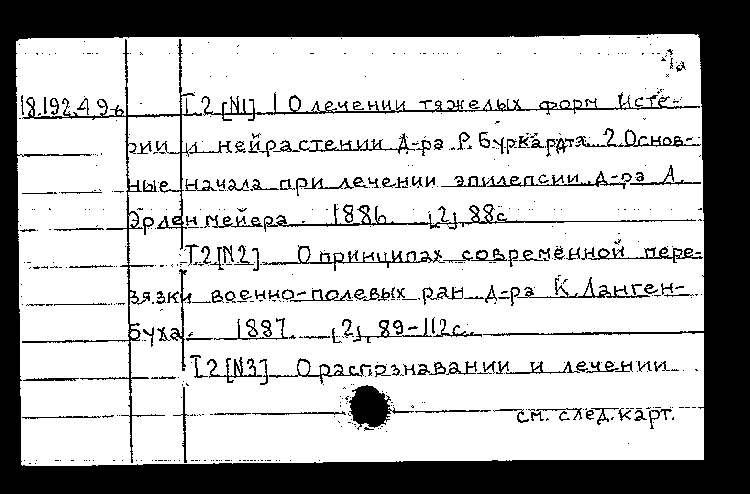 1а
18.192.4.9б Т.2 [N1] 1 О лечении тяжелых форм исте-
рии и нейрастении д-ра Р. Буркардта 2. Основ-
ные начала при лечении эпилепсии д-ра А.
Эрленмейера. 1886. [2], 88с
Т.2 [N2] О принципах современной пере-
вязки военно-полевых ран д-ра К. Ланген-
буха. 1887. [2], 89-112с.
Т.2 [N3] О распрзнавании и лечении
см. след. карт.